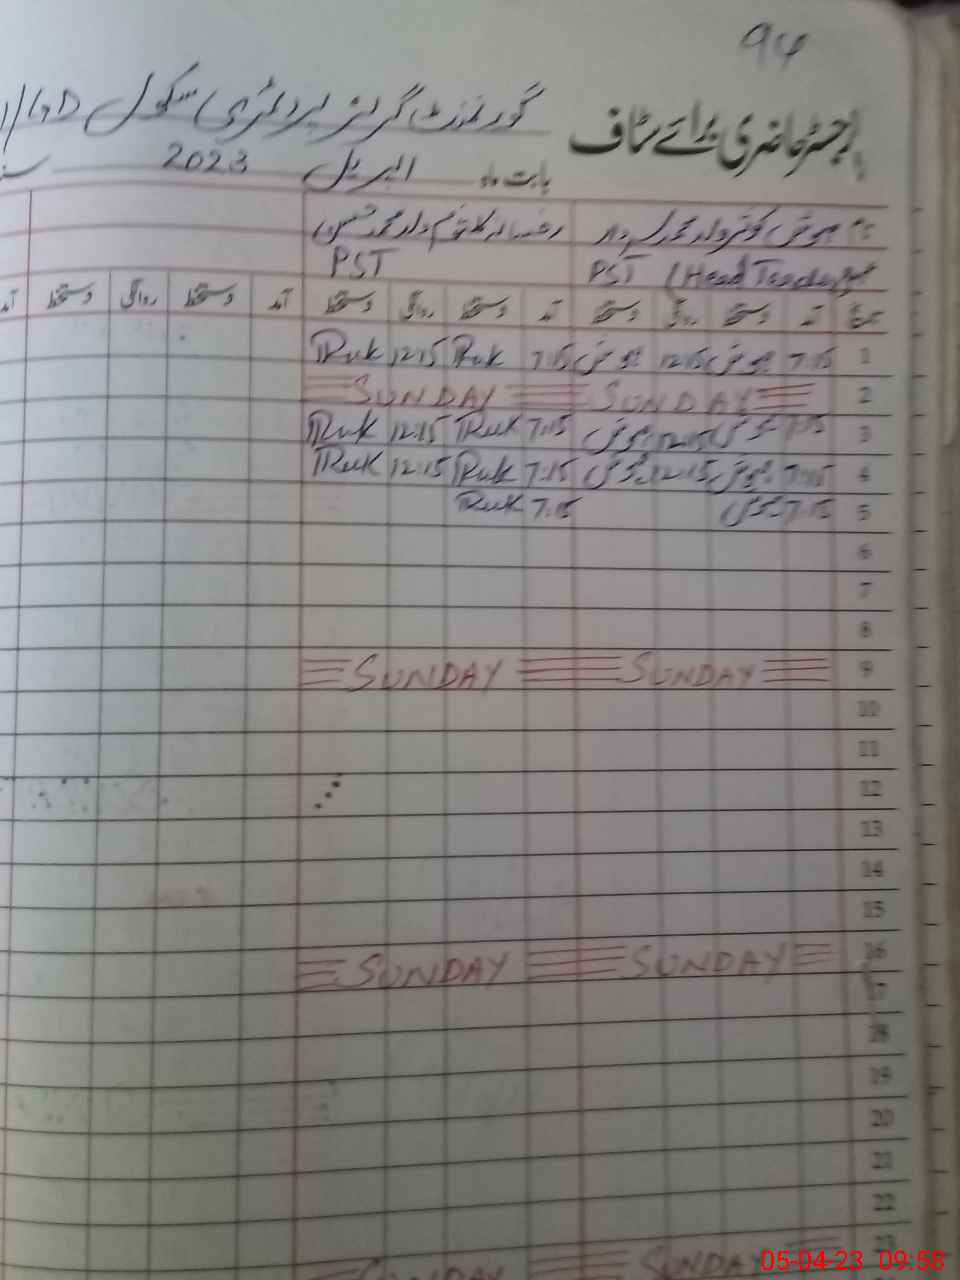 94
رجسٹر حاضری برائے سٹاف گورنمنٹ گرلز پرائمری سکول
بابت ماہ اپریل 2023
نام
PST (Head Teacher) PST
تاریخ آمد دستخط روانگی دستخط آمد دستخط روانگی دستخط آمد دستخط روانگی دستخط آمد
1 7:15 مہوش 12:15 مہوش 7:15 Ruk 12:15 Ruk
2 SUNDAY SUNDAY
3 7:15 مہوش 12:15 مہوش 7:15 Ruk 12:15 Ruk
4 7:15 مہوش 12:15 مہوش 7:15 Ruk 12:15 Ruk
5 7:15 مہوش 7:15 Ruk
6
7
8
9 SUNDAY SUNDAY
10
11
12
13
14
15
16 SUNDAY SUNDAY
17
18
19
20
21
22
23 SUNDAY SUNDAY
05-04-23 09:58